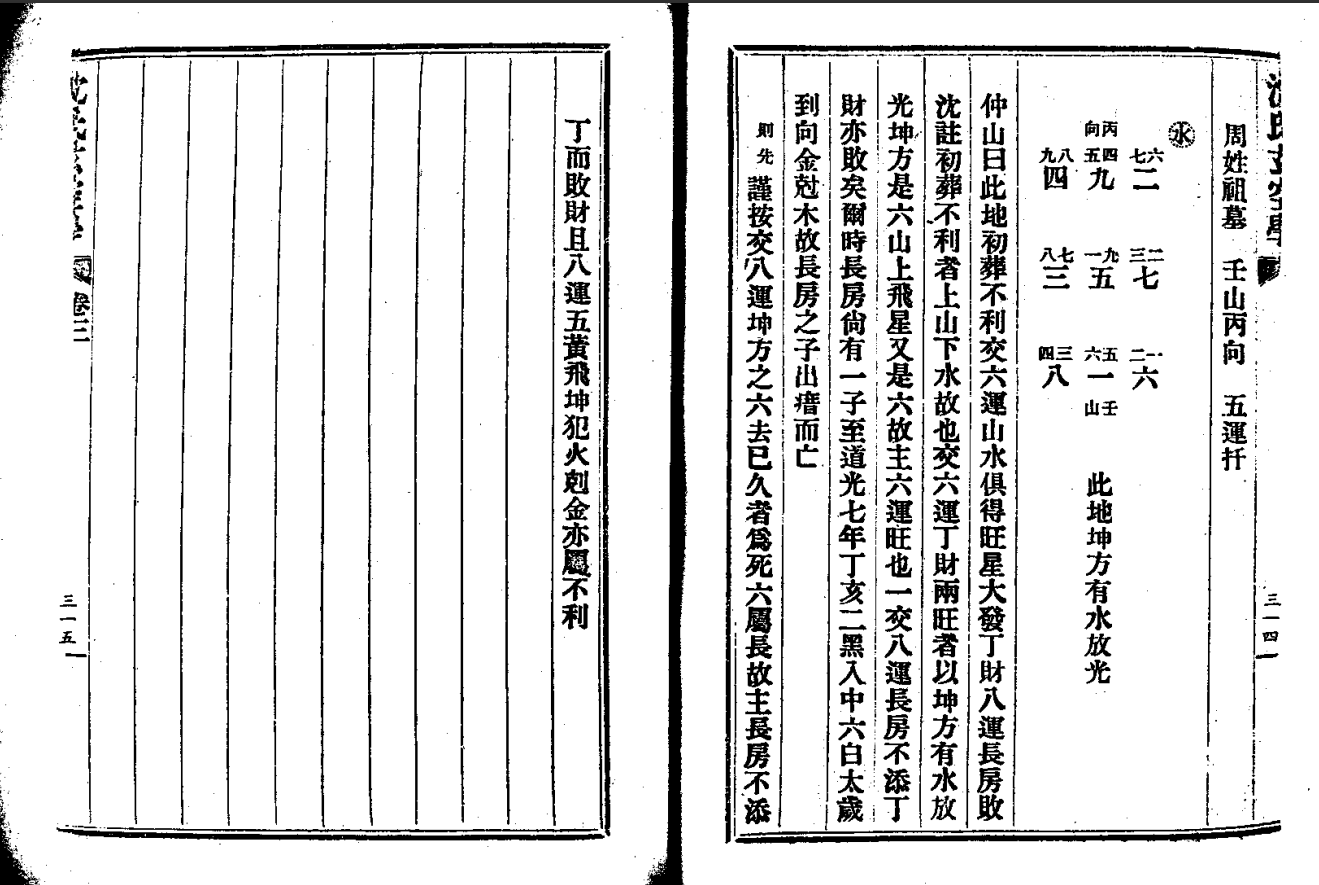 沈氏玄空學
三一四
周姓祖墓　壬山丙向　五運扦
水
六七 二　二三 七　一二 六
丙向 四五 九　九一 五　五六 一 壬山
此地坤方有水放光
八九 四　七八 三　三四 八
仲山曰此地初葬不利交六運山水俱得旺星大發丁財八運長房敗
沈註初葬不利者上山下水故也交六運丁財兩旺者以坤方有水放
光坤方是六山上飛星又是六故主六運旺也一交八運長房不添丁
財亦敗矣爾時長房尙有一子至道光七年丁亥二黑入中六白太歲
到向金尅木故長房之子出瘄而亡
則先　謹按交八運坤方之六去已久者爲死六屬長故主長房不添
丁而敗財且八運五黃飛坤犯火剋金亦屬不利
卷三
三一五